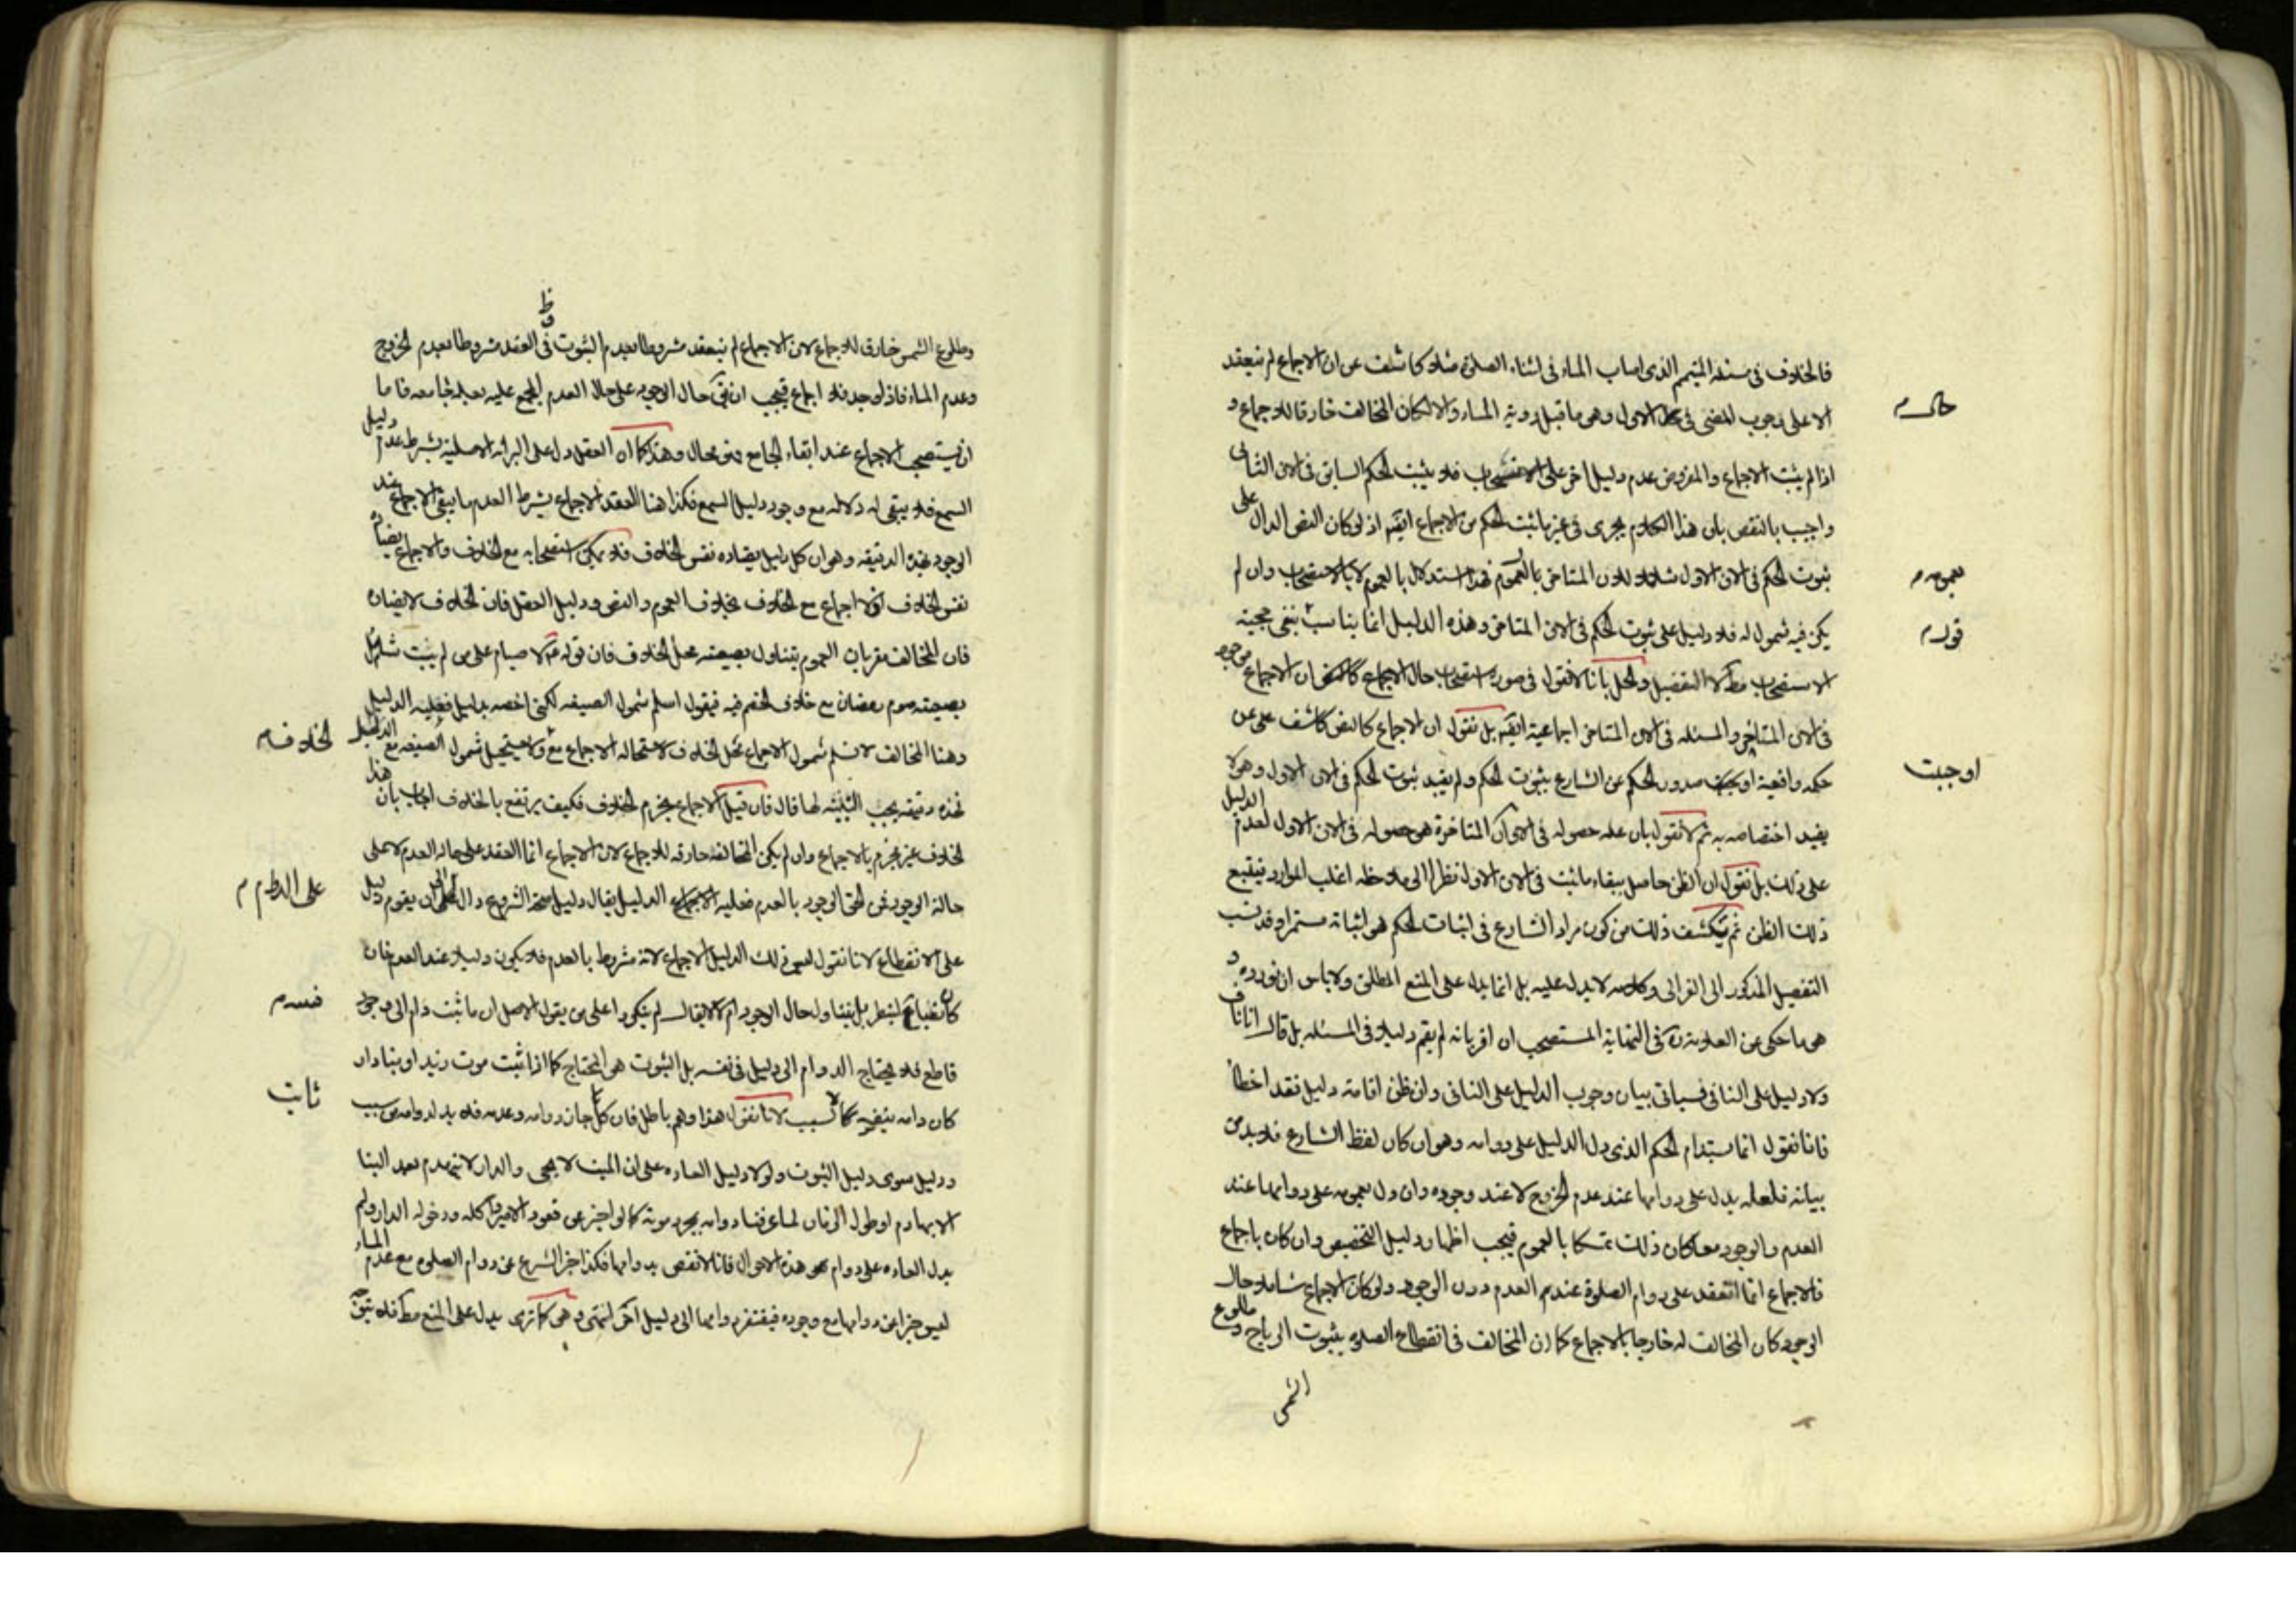 فالخلاف فى مسئلة المتيمم الذى اصاب الماء فى اثناء الصلوة مثلا كاشف عن ان الاجماع لم ينعقد
الا على وجوب المضى فى الاول وهو ما قبل روية الماء والا لكان المخالف خارقا للاجماع و
حال م
اذا لم يثبت الاجماع والمفروض عدم دليل اخر على الاستصحاب فلا يثبت الحكم السابق فى الان الثانى
واجيب بالنقص بان هذا الكلام يجرى فى غير ما ثبت الحكم من الاجماع ايضا اذ لو كان النص الدال على
ثبوت الحكم فى الان الاول شاملا للان المتاخر بالعموم فهذا استدلال بالعموم لا بالاستصحاب وان لم
بعمومه م
يكن فيه شمول له فلا دليل على ثبوت الحكم فى الان المتاخر وهذه الدليل انما يناسب بنفى حجية
قول م
الاستصحاب مط لا التفصيل والحل بانا لا نقول فى صورة استصحاب حال الاجماع ان الاجماع موجود
فى الان المتاخر والمسئلة فى الان المتاخر اجماعية ايضا بل نقول ان الاجماع كالنص كاشف على عن
حكمه واقعية صدور الحكم من الشارع بثبوت الحكم ولم يفيد ثبوت الحكم فى الان الاول وهو لا
اوجبت
يفيد اختصاصه به ثم لا نقول بان علة حصوله فى الان المتاخرة هو حصوله فى الان الاول لعدم الدليل
على ذلك بل نقول ان الظن حاصل ببقاء ما ثبت فى الان الاول نظرا الى ملاحظة اغلب الموارد فيتبع
ذلك الظن ثم ينكشف ذلك من كون مراد الشارع فى اثبات الحكم هو اثباته مستمرا وقد نسب
التفصيل المذكور الى الغزالى وكلامه لا يدل عليه بل انما يدل على المنع المطلق ولا باس ان نورده و
هو ما حكى عن العلامة ره فى النهاية المستصحب ان اقر بانه لم يقم دليلا فى المسئلة بل قال انا ناف
ولا دليل على النافى فسياتى بيان وجوب الدليل على النافى وان ظن اقامة دليل فقد اخطا
فانا نقول انما يستدام الحكم الذى دل الدليل على دوامه وهو ان كان لفظ الشارع فلا بد من
بيانه فلعله يدل على دوامها عند عدم الخروج لا عند وجوده وان دل بعمومه على دوامها عند
العدم والوجود معا كان ذلك تمسكا بالعموم فيجب اظهار دليل التخصيص وان كان باجماع
فالاجماع انما انعقد على دوام الصلوة عند العدم دون الوجود ولو كان الاجماع شاملا حال
الوجود كان المخالف له خارجا بالاجماع كما ان المخالف فى انقطاع الصلوة بثبوت الرياح و طلوع
الشمس
وطلوع الشمس خارق للاجماع لان الاجماع لم ينعقد مشروطا بعدم الثبوت فى العقد مشروطا بعدم الخروج
ظ
وعدم الماء فاذا وجد فلا اجماع فيجب ان حال الوجود على حال العدم المجمع عليه بعلة جامعة فاما
ان يستصحب الاجماع عند ابقاء الجامع فهو محال وهذا كما ان العقل دل على البرائة الاصلية بشرط عدم دليل
السمع فلا يبقى له دلالة مع وجود دليل السمع فكذا هنا انعقد الاجماع بشرط العدم ما يبقى الاجماع عند
الوجود فهذه الدقيقة وهو ان كل دليل يضاده نفس الخلاف فلا يمكن استصحابه مع الخلاف والاجماع يضاده
نفس الخلاف اذ لا اجماع مع الخلاف بخلاف العموم والنص ودليل العقل فان الخلاف لا يضاده
فان المخالف مقر بان العموم يتناول بصيغته محل الخلاف فان قوله ع لا صيام على من لم يبيت شامل
بصيغته صوم رمضان مع خلاف الخصم فيه فيقول اسلم شمول الصيغة لكنى اخصه بدليل فعليه الدليل
وهنا المخالف لا نسلم شمول الاجماع محل الخلاف لاستحالة الاجماع مع ولا يستحيل شمول الصيغة مع الدليل
الخلاف م
فهذه دقيقة يجب التنبه لها فان قيل الاجماع يحرم الخلاف فكيف يرتفع بالخلاف اجاب بان هذا
الخلاف غير محرم بالاجماع وان لم يكن المخالفة خارقة للاجماع لان الاجماع انما انعقد على حالة العدم لا على
حالة الوجود فمن الحق الوجود بالعدم فعليه الدليل يقال دليل صحة الشروع دال الى ان يقوم دليل
على الدوام م
على الانقطاع لانا نقول ليس ذلك الدليل الاجماع لانه مشروط بالعدم فلا يكون دليلا عند العدم فان
كان نصا فبين لينظر بل يتناول حال الوجود ام لا لا يقال لم ينكروا على من يقول الاصل ان ما ثبت دام الى وجود
فنسده م
قاطع فلا يحتاج الدوام الى دليل فى نفسه بل الثبوت هو المحتاج كما اذا ثبت موت زيد او بناء دار
كان دامه بنفسه لا بسبب لانا نقول هذا وهم باطل فان كل ما جاز دوامه وعدمه فلا بد لدوامه من سبب
ثابت
ودليل سوى دليل الثبوت ولولا دليل العادة على ان الميت لا يحيى والدار لا ينهدم بعد البنا
الا بهادم او طول الزمان لما عرفنا دوامه بمجرد موته كما لو اخبر عن قعود الامير واكله ودخوله الدار ولم
يدل العادة على دوام هذه الاحوال فانا لا نقضى بدوامها فكذا خبر الشرع عن دوام الصلوة مع عدم الماء
ليس خبرا عن دوامها مع وجوده فيفتقر دوامها الى دليل اخر انتهى وهو كما ترى يدل على المنع مط فلا